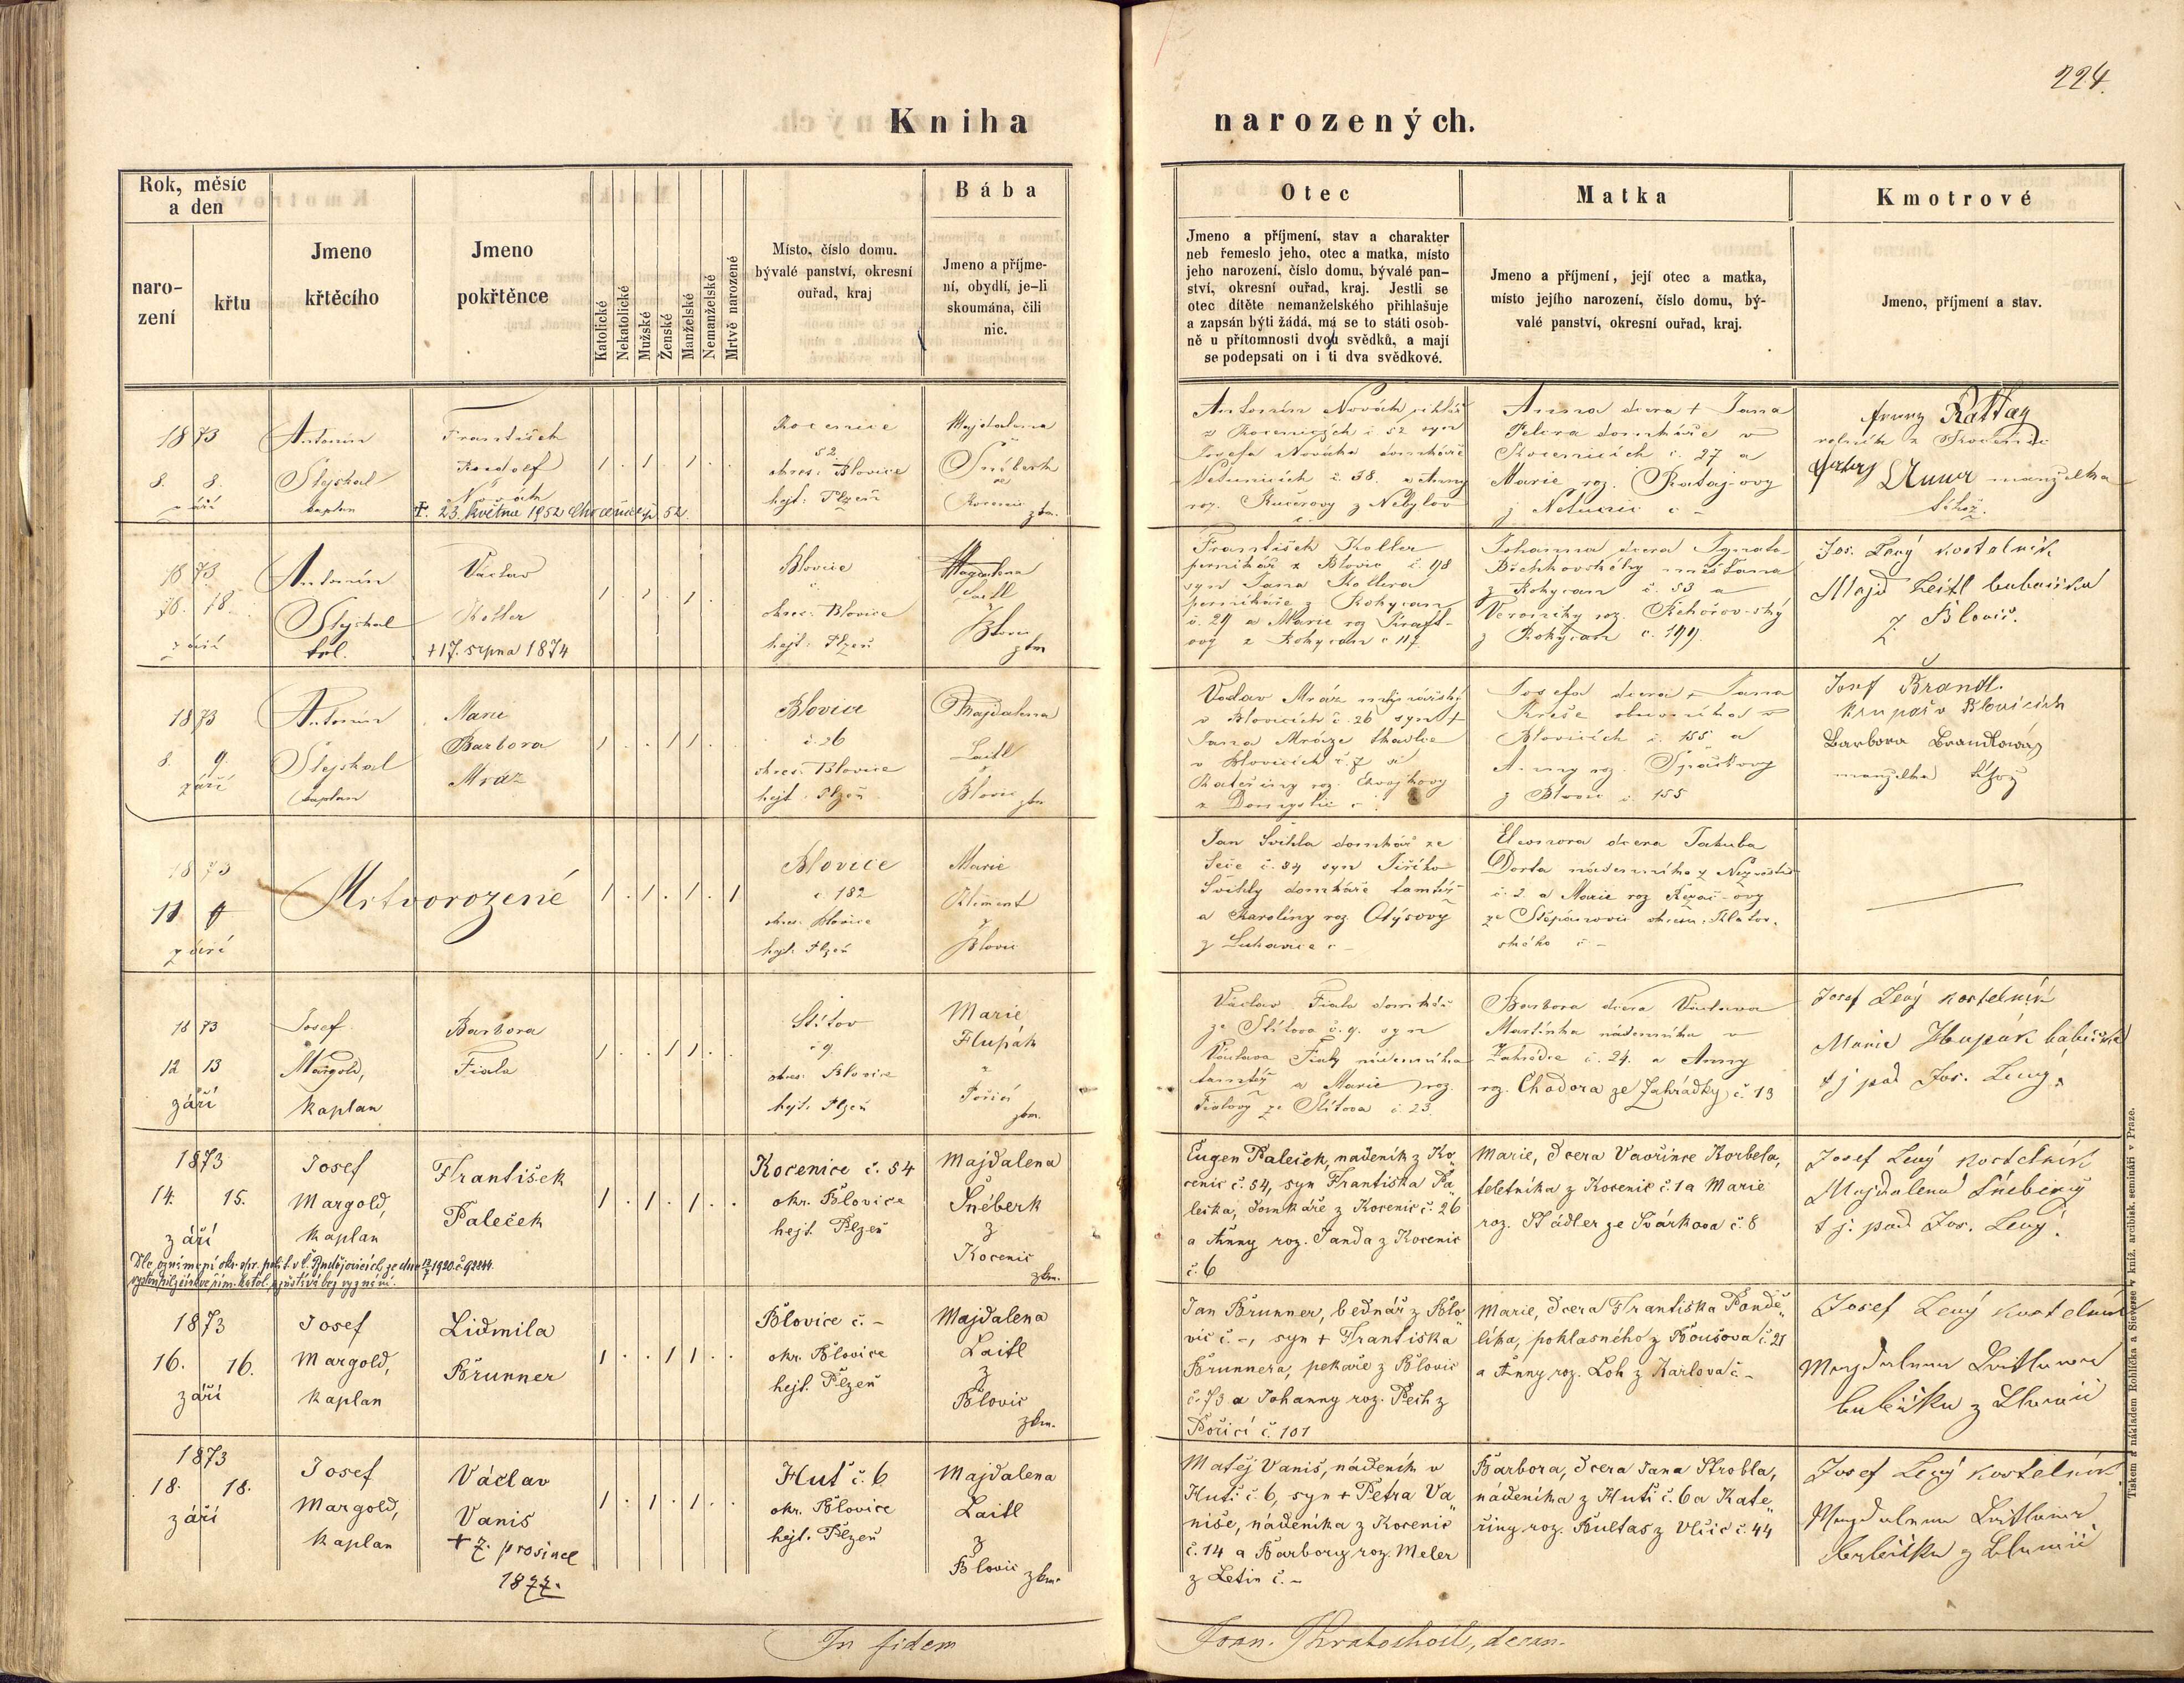 224.
Kniha narozených.
Rok, měsíc
a den
naro-
zení
křtu
Jmeno
křtěcího
Jmeno
pokřtěnce
Katolické
Nekatolické
Mužské
Ženské
Manželské
Nemanželské
Mrtvě narozené
Místo, číslo domu,
bývalé panství, okresní
ouřad, kraj
Bába
Jmeno a příjme-
ní, obydlí, je-li
skoumána, čili
nic.
Otec
Jmeno a příjmení, stav a charakter
neb řemeslo jeho, otec a matka, místo
jeho narození, číslo domu, bývalé pan-
ství, okresní ouřad, kraj. Jestli se
otec dítěte nemanželského přihlašuje
a zapsán býti žádá, má se to státi osob-
ně u přítomnosti dvou svědků, a mají
se podepsati on i ti dva svědkové.
Matka
Jmeno a příjmení, její otec a matka,
místo jejího narození, číslo domu, bý-
valé panství, okresní ouřad, kraj.
Kmotrové
Jmeno, příjmení a stav.
1873
8. 8.
září
Antonín
Stejskal
kaplan
František
Rudolf
Novák
+. 23. května 1952 52.
Kocenice
52.
okres: Blovice
hejt: Plzeň
Majdalena
Šnéberk
Kocenic
zkm.
Antonín Novák
z Kocenic č. 52 syn
Josefa Nováka domkáře
Netunicích č. 38. a Anny
roz. Kučerovy z Nebylov
č. -
Anna dcera + Jana
Pelcra domkáře v
Kocenicích č. 27 a
Marie roz. Rataj-ovy
z Netunic č -
Franz Rattay
rolník z Kocenic
Anna manželka
téhož.
1873
16. 18.
září
Antonín
Stejskal
kpl.
Václav
Koller
+ 17. srpna 1874
Blovice
č.
okres: Blovice
hejt: Plzeň
Magdalena
Laitl
z
Blovic
zkm
František Koller
perníkář z Blovic č. 98
syn Jana Kollera
perníkáře z Rokycan
č. 29 a Marie roz Kraft-
ovy z Rokycan č 117.
Johanna dcera Ignata
měšťana
z Rokycan č. 53 a
Veroniky roz. Řehořov-ský
z Rokycan č. 199.
Jos. Levý kostelník
Majd Leitl babička
z Blovic.
1873
8. 9.
září
Antonín
Stejskal
kaplan
Marie
Barbora
Mráz
Blovice
č. 26
okres: Blovice
hejt: Plzeň
Magdalena
Laitl
z
Blovic zkm
Václav Mráz
v Blovicích č. 26 syn +
Jana Mráze tkadlce
v Blovicích č. 7 a
Kateřiny roz.
z Domyslic č.
Josefa dcera + Jana
Kreše obuvníka v
Blovicích č. 155 a
Anny roz. Špačkovy
z Blovic č. 155
Josef Brandl.
krupař v Blovicích
Barbora Brandlová
manželka téhož
1873
11
září
Mrtvorozené
Blovice
č 182
okres. Blovice
hejt. Plzeň
Marie
Kliment
z
Blovic
Jan Švihla domkář ze
Seče č. 84 syn Jiřího
Švihly domkáře tamtéž
a Karolíny roz. Otýsovy
z Luhavice č -
Eleonora dcera Jakuba
Dorta nádeníka z
č. 2. a Marie roz
ze Štěpánovic okresu: Klatov-
ského č -
1873
12 13
září
Josef
Margold,
kaplan
Barbora
Fiala
Štítov
č 9.
okres: Blovice
hejt. Plzeň
Marie
Hlupák
z
Poříčí
zkm.
Václav Fiala domkář
ze Štítova č. 9. syn
Václava Fialy nádenníka
tamtéž a Marie roz.
Fialovy ze Štítova č. 23.
Barbora dcera Václava
Martínka nádenníka v
Zahrádce č. 24. a Anny
roz. Chadora ze Zahrádky č. 13
Josef Levý kostelník
Marie Hlupák babička
t j pod Jos. Levý.
1873
14. 15.
září
Josef
Margold,
kaplan
František
Paleček
Kocenice č. 54
okr. Blovice
hejt. Plzeň
Majdalena
Šnéberk
z
Kocenic
zkm.
Dle oznámení okr. spr. polit. v Č. Budějovicích ze dne 12/7 1920. č. 92244.
vystoupil z církve řím. katol. a zůstává bez vyznání.
Eugen Paleček, nádeník z Ko-
cenic č. 54, syn Františka Pa-
lečka, domkáře z Kocenic č. 26
a Anny roz. Janda z Kocenic
č. 6
Marie, dcera Vavřince Korbela,
z Kocenic č. 1 a Marie
roz. Städler ze Svárkova č. 8
Josef Levý kostelník
Majdalena Šnéberg
t j. pod Jos. Levý.
1873
16. 16.
září
Josef
Margold,
kaplan
Lidmila
Brunner
Blovice č. -
okr. Blovice
hejt. Plzeň
Majdalena
Laitl
z
Blovic
zkm.
Jan Brunner, bednář z Blo-
vic č. -, syn + Františka
Brunnera, pekaře z Blovic
č. 73 a Johanny roz. Pech z
Poříčí č. 101
Marie, dcera Františka Ponde-
líka, poklasného z Boušova č. 21
a Anny roz. Loh z Karlova č -
Josef Levý kostelník
Magdalena Laitlowa
babička z Blowic
1873
18. 18.
září
Josef
Margold,
kaplan
Václav
Vaniš
+ 7. prosince
1877.
Huť č. 6
okr. Blovice
hejt. Plzeň
Majdalena
Laitl
z
Blovic zkm.
Matěj Vaniš, nádeník v
Huti č. 6, syn + Petra Va-
niše, nádeníka z Kocenic
č. 14 a Barbory roz. Meler
z Letin č. -
Barbora, dcera Jana Strobla,
nádeníka z Huti č. 6 a Kate-
řiny roz. Bultas z Vlčic č. 44
Josef Levý kostelník
Magdalena Laitlowa
babička z Blowic
In fidem
Joan. Kratochvil, decan.
Tiskem a nákladem Rohlíčka a Sieversse v kníž. arcibisk. semináři v Praze.